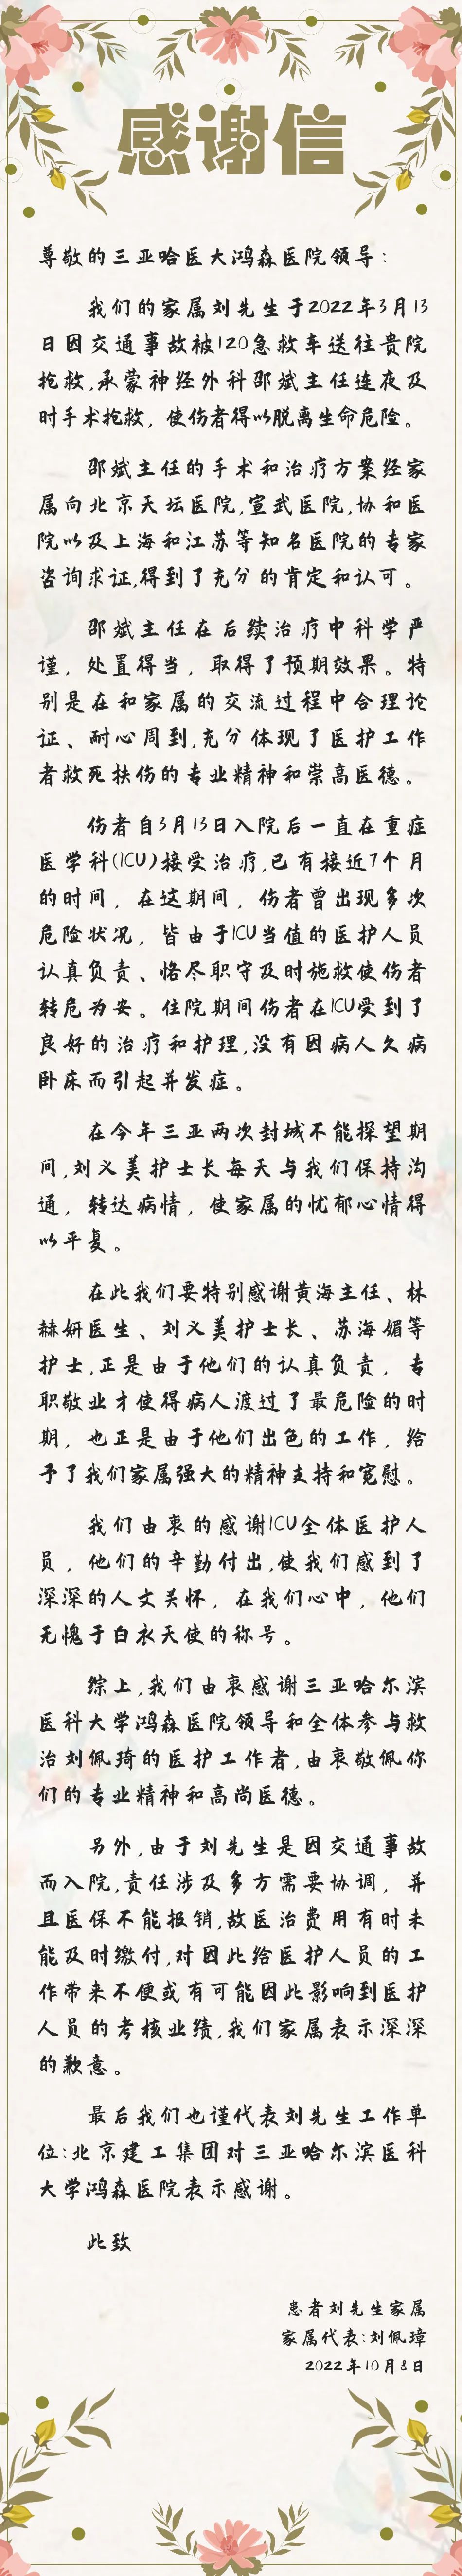 感谢信
尊敬的三亚哈医大鸿森医院领导：
我们的家属刘先生于2022年3月13
日因交通事故被120急救车送往贵院
抢救,承蒙神经外科邵斌主任连夜及
时手术抢救，使伤者得以脱离生命危险。
邵斌主任的手术和治疗方案经家
属向北京天坛医院,宣武医院,协和医
院以及上海和江苏等知名医院的专家
咨询求证,得到了充分的肯定和认可。
邵斌主任在后续治疗中科学严
谨，处置得当，取得了预期效果。特
别是在和家属的交流过程中合理论
证、耐心周到,充分体现了医护工作
者救死扶伤的专业精神和崇高医德。
伤者自3月13日入院后一直在重症
医学科(ICU)接受治疗,已有接近7个月
的时间，在这期间，伤者曾出现多次
危险状况，皆由于ICU当值的医护人员
认真负责、恪尽职守及时施救使伤者
转危为安。住院期间伤者在ICU受到了
良好的治疗和护理,没有因病人久病
卧床而引起并发症。
在今年三亚两次封城不能探望期
间,刘义美护士长每天与我们保持沟
通，转达病情，使家属的忧郁心情得
以平复。
在此我们要特别感谢黄海主任、林
赫妍医生、刘义美护士长、苏海媚等
护士,正是由于他们的认真负责，专
职敬业才使得病人渡过了最危险的时
期，也正是由于他们出色的工作，给
予了我们家属强大的精神支持和宽慰。
我们由衷的感谢ICU全体医护人
员，他们的辛勤付出,使我们感到了
深深的人文关怀，在我们心中，他们
无愧于白衣天使的称号。
综上,我们由衷感谢三亚哈尔滨
医科大学鸿森医院领导和全体参与救
治刘佩琦的医护工作者,由衷敬佩你
们的专业精神和高尚医德。
另外,由于刘先生是因交通事故
而入院,责任涉及多方需要协调，并
且医保不能报销,故医治费用有时未
能及时缴付,对因此给医护人员的工
作带来不便或有可能因此影响到医护
人员的考核业绩,我们家属表示深深
的歉意。
最后我们也谨代表刘先生工作单
位:北京建工集团对三亚哈尔滨医科
大学鸿森医院表示感谢。
此致
患者刘先生家属
家属代表:刘佩璋
2022年10月8日